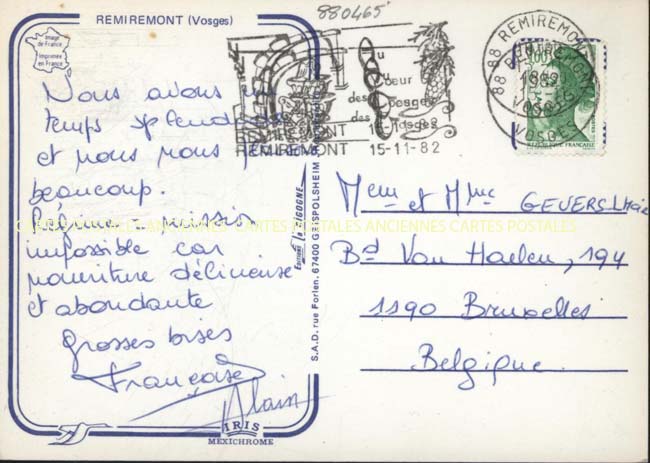 REMIREMONT (Vosges)
880465
Image
de France
Imprimée
en France
Nous avons un
temps splendide
et nous nous
beaucoup.
Régime = mission
impossible car
nourriture délicieuse
et abondante
Grosses bises
Françoise
Alain
au
coeur
des vosges
des vosges
REMIREMONT
REMIREMONT 15-11-82
88 REMIREMONT
VOSGES
1,60
REPUBLIQUE FRANCAISE
Editions La CIGOGNE
S.A.D. rue Forlen. 67400 GEISPOLSHEIM
Mem et Mme GEVERS
Bd Van Haelen, 194
1190 Bruxelles
Belgique
CARTES POSTALES ANCIENNES CARTES POSTALES ANCIENNES CARTES POSTALES
IRIS
MEXICHROME